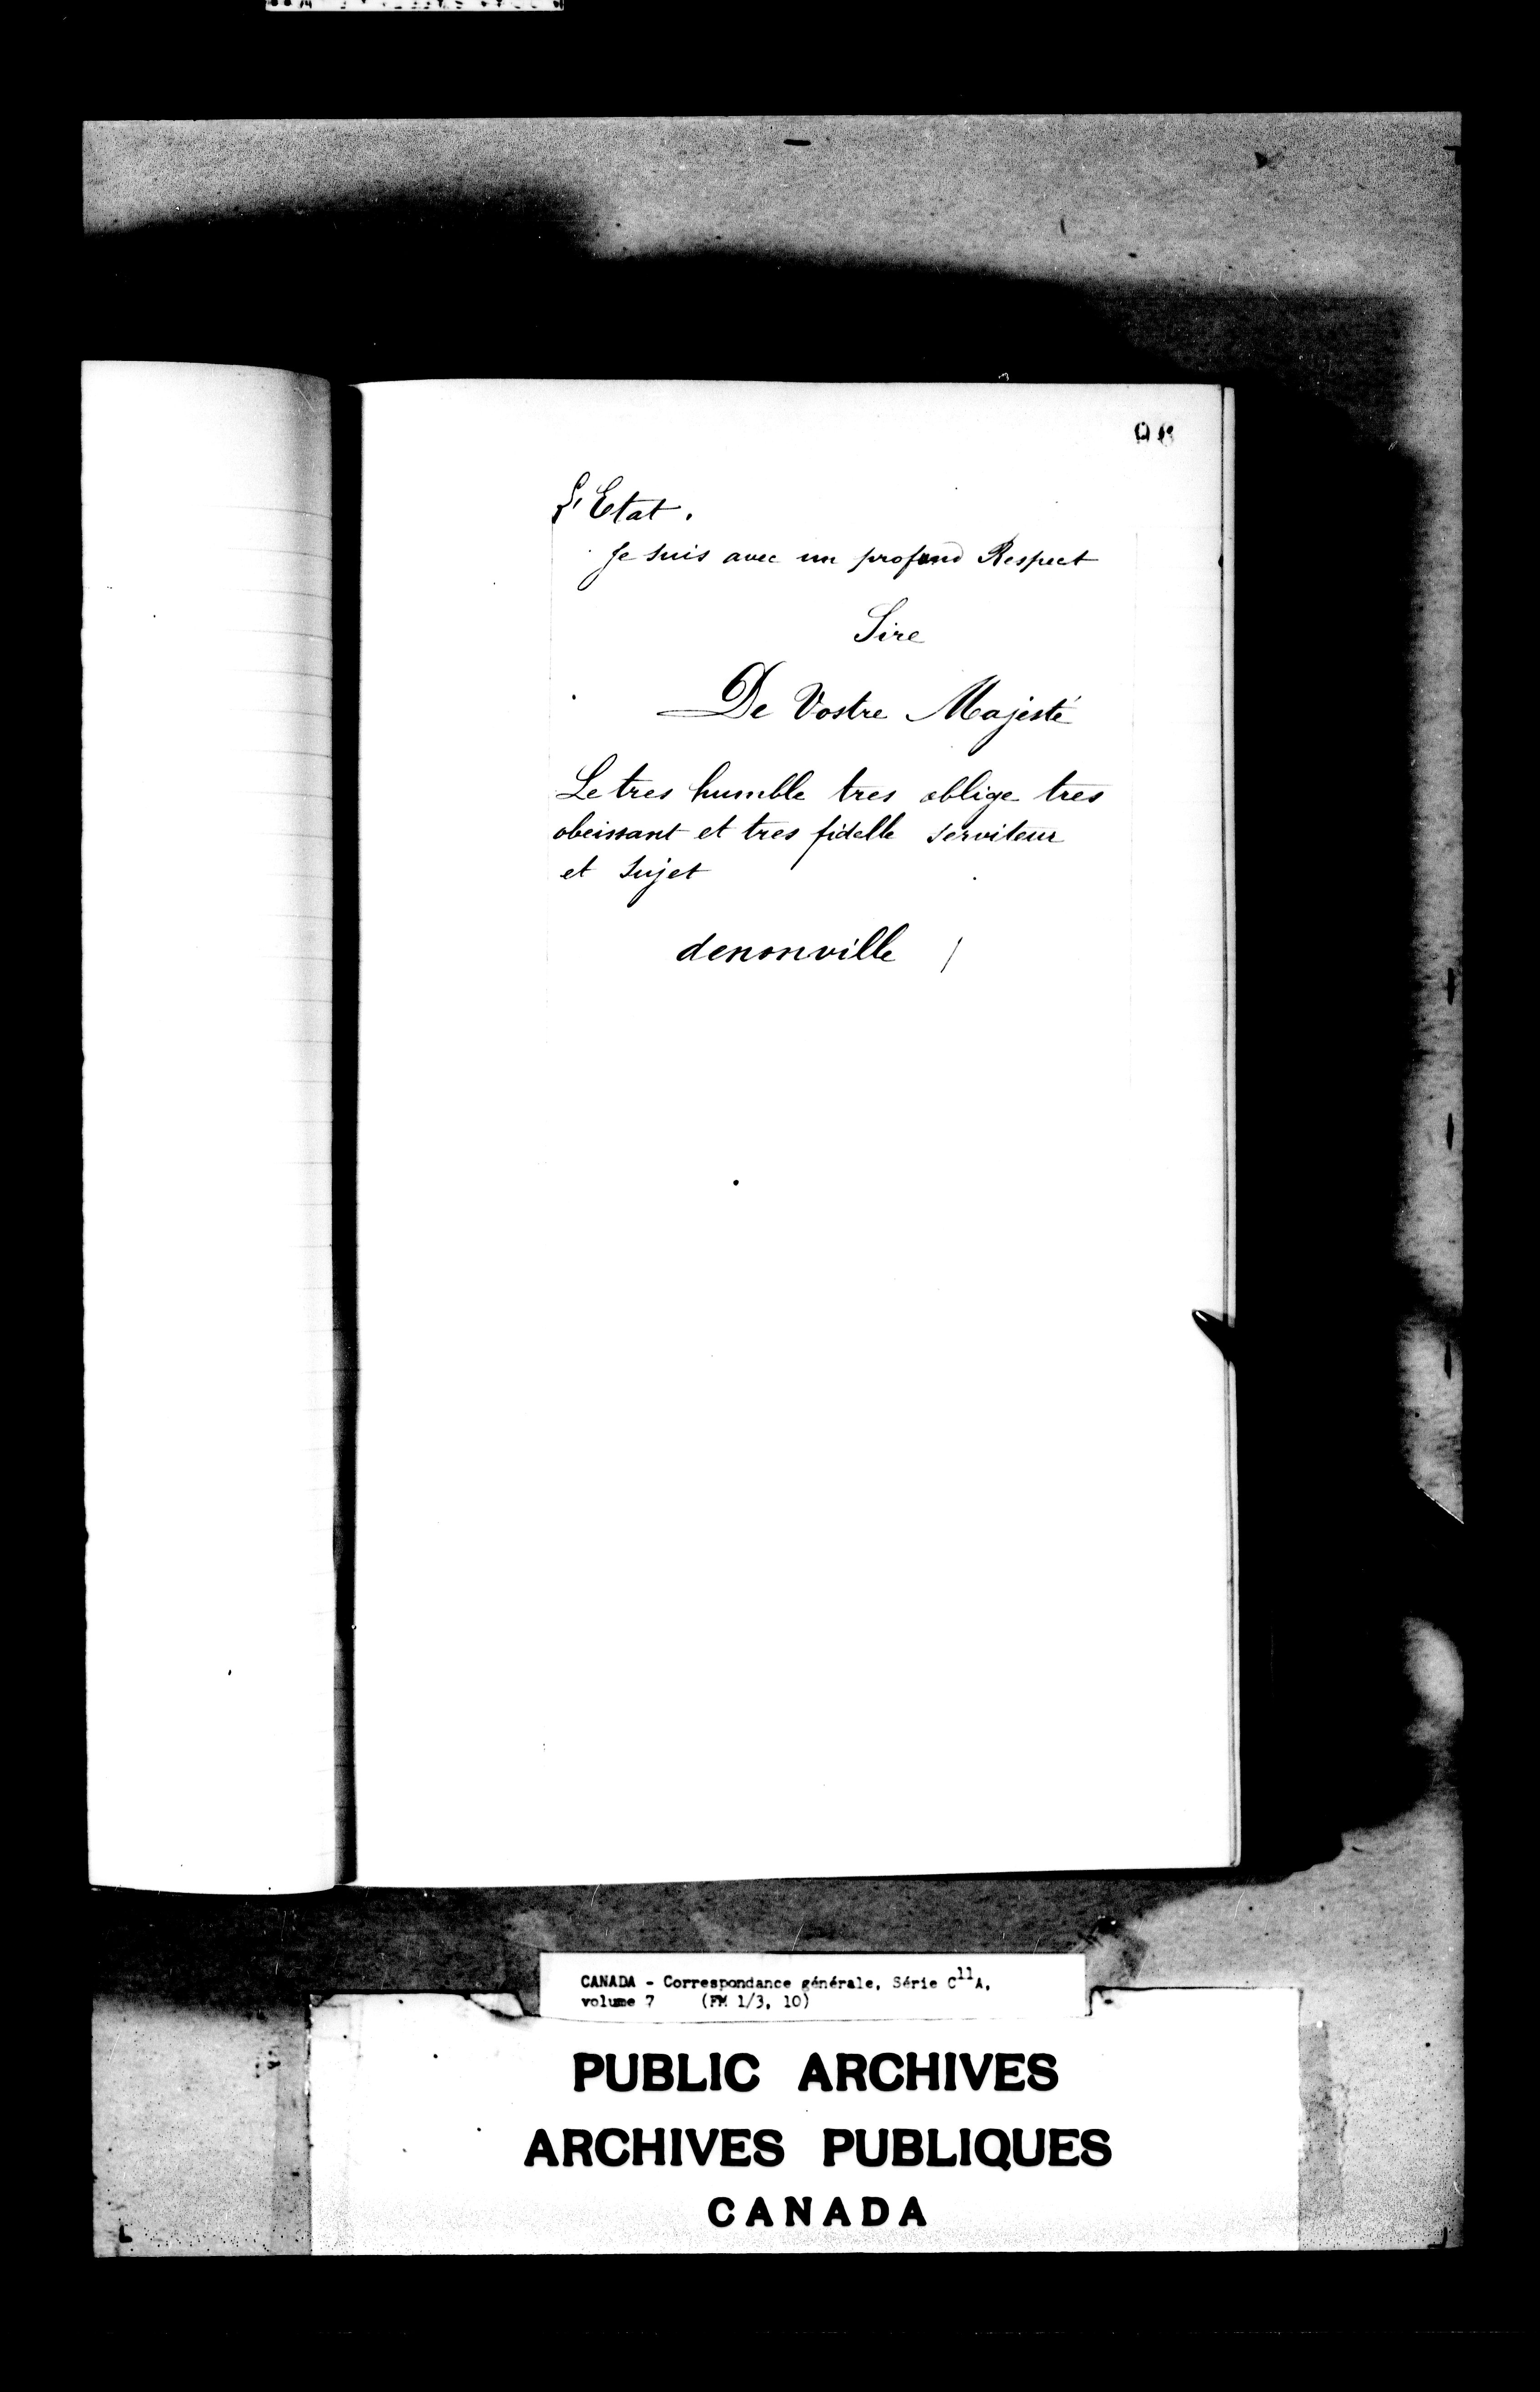 l'Etat.
Je suis avec un profond Respect
Sire
De Vostre Majesté
Le tres humble tres oblige tres
obeissant et tres fidelle serviteur
et sujet
denonville
CANADA - Correspondance générale, Série C11A,
volume 7 (FM 1/3, 10)
PUBLIC ARCHIVES
ARCHIVES PUBLIQUES
CANADA